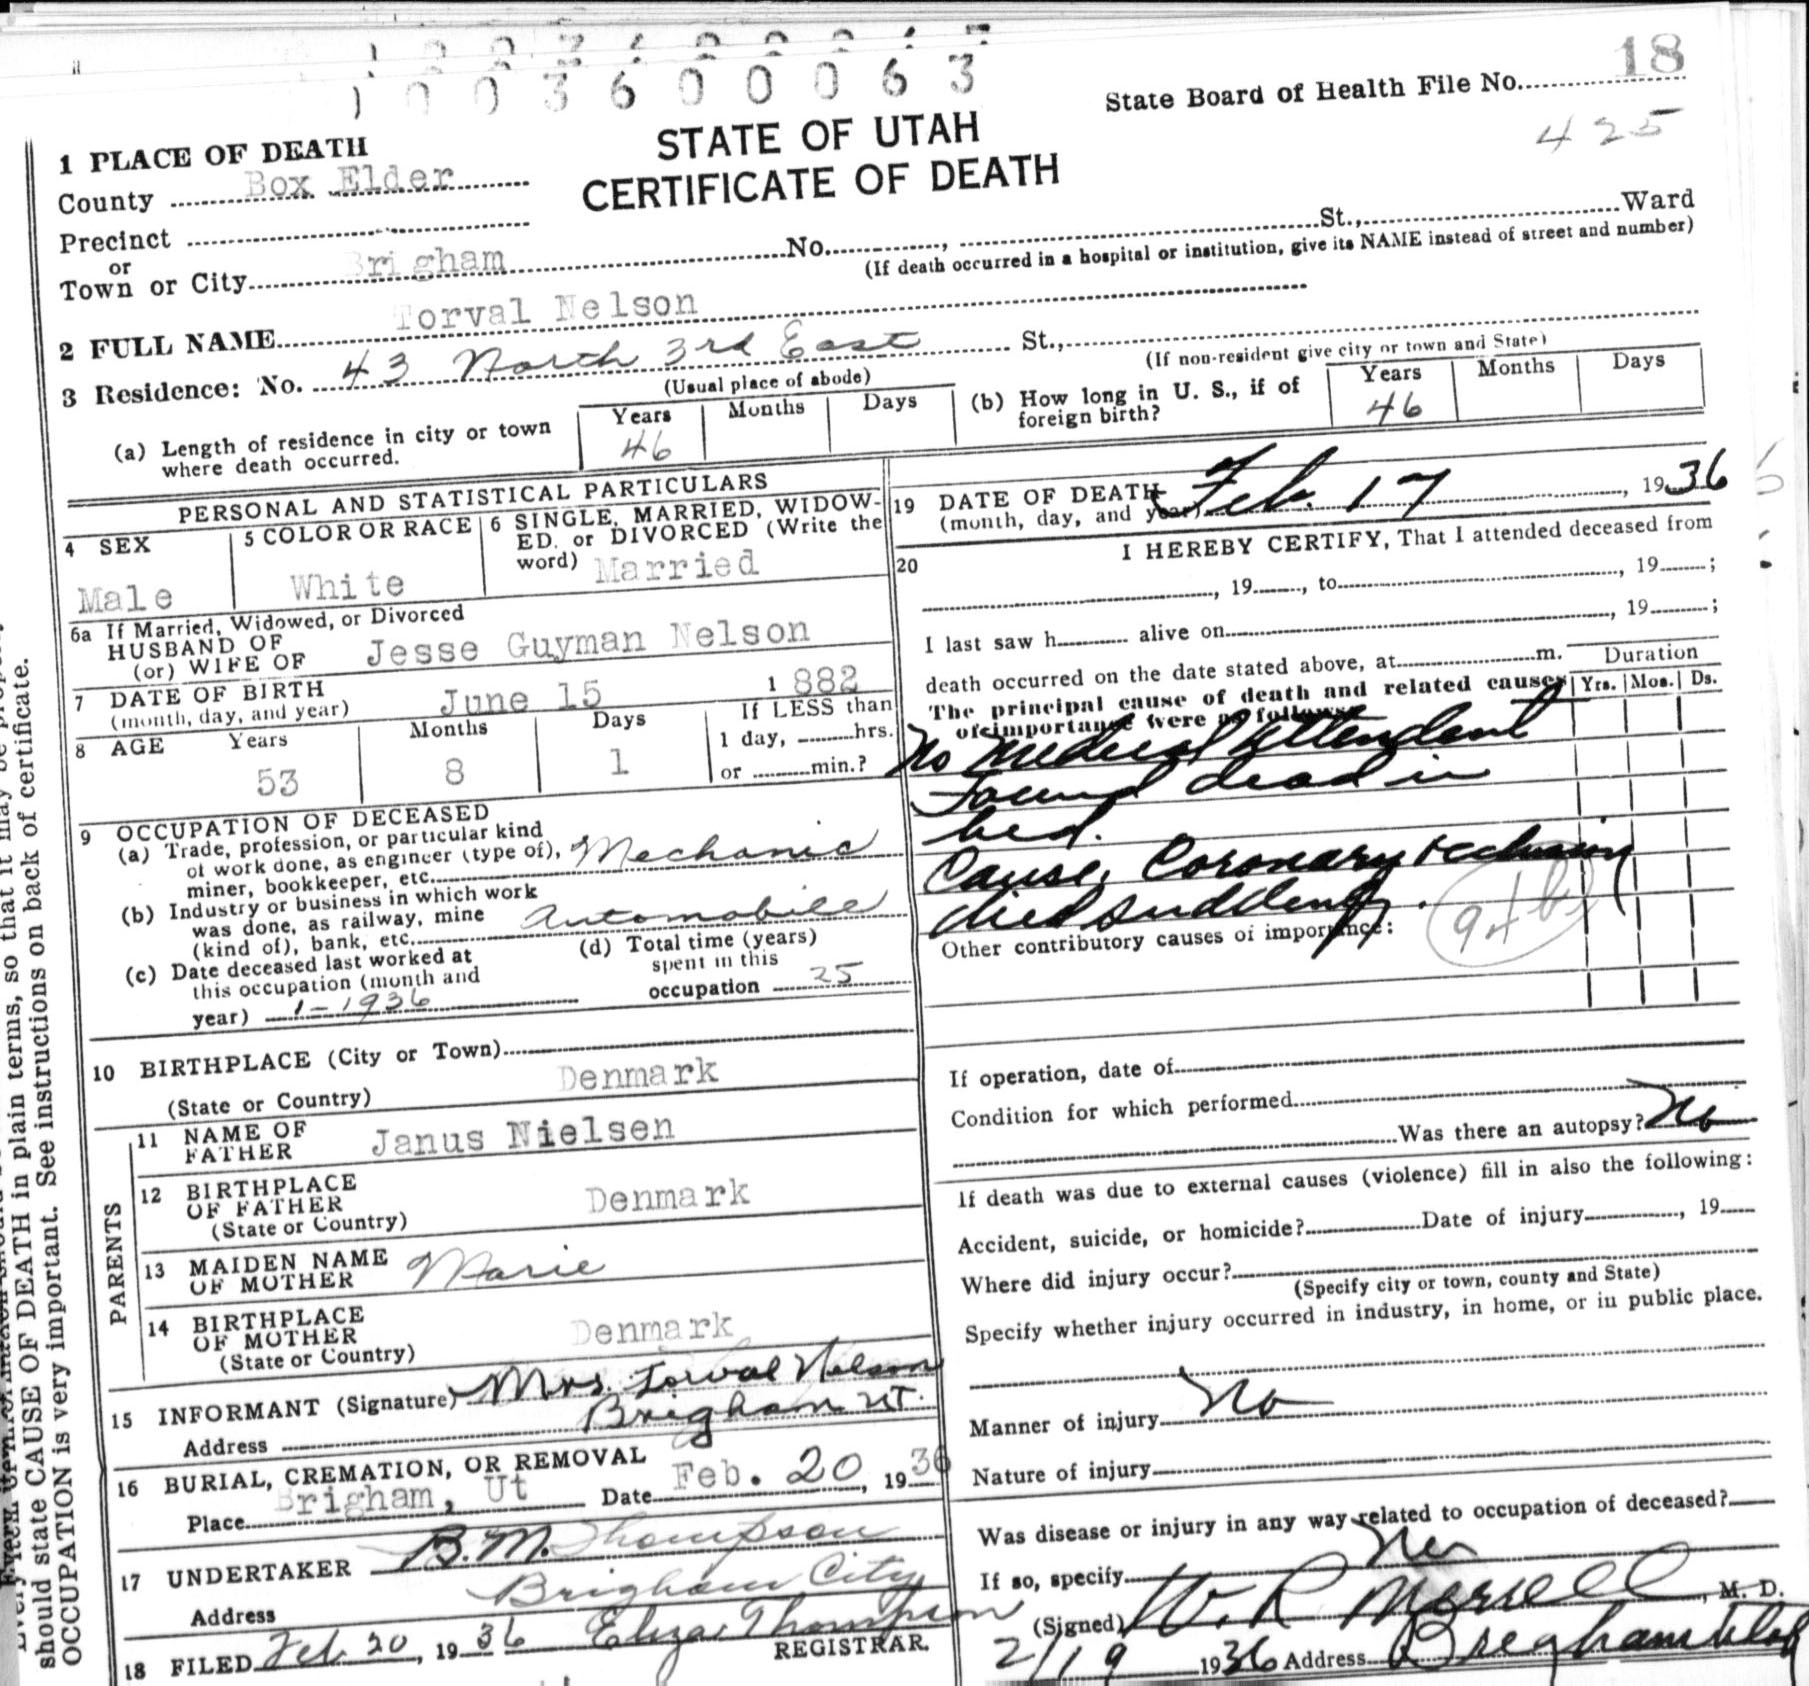 1 0 0 3 6 0 0 0 6 3
State Board of Health File No. 18
425
STATE OF UTAH
CERTIFICATE OF DEATH
1 PLACE OF DEATH
County Box Elder
Precinct
or
Town or City Brigham No. , St., Ward
(If death occurred in a hospital or institution, give its NAME instead of street and number)
2 FULL NAME Torval Nelson
3 Residence: No. 43 North 3rd East St.,
(Usual place of abode) (If non-resident give city or town and State)
(a) Length of residence in city or town where death occurred. Years 46 Months Days
(b) How long in U. S., if of foreign birth? Years 46 Months Days
PERSONAL AND STATISTICAL PARTICULARS
4 SEX
Male
5 COLOR OR RACE
White
6 SINGLE, MARRIED, WIDOW-
ED, or DIVORCED (Write the
word) Married
6a If Married, Widowed, or Divorced
HUSBAND OF
(or) WIFE OF Jesse Guyman Nelson
7 DATE OF BIRTH
(month, day, and year) June 15 1882
8 AGE Years 53 Months 8 Days 1
If LESS than
1 day, hrs.
or min.?
9 OCCUPATION OF DECEASED
(a) Trade, profession, or particular kind
of work done, as engineer (type of), Mechanic
miner, bookkeeper, etc.
(b) Industry or business in which work
was done, as railway, mine Automobile
(kind of), bank, etc.
(c) Date deceased last worked at
this occupation (month and
year) 1-1936
(d) Total time (years)
spent in this
occupation 25
10 BIRTHPLACE (City or Town)
(State or Country) Denmark
PARENTS
11 NAME OF
FATHER Janus Nielsen
12 BIRTHPLACE
OF FATHER Denmark
(State or Country)
13 MAIDEN NAME
OF MOTHER Marie
14 BIRTHPLACE
OF MOTHER Denmark
(State or Country)
15 INFORMANT (Signature) Mrs. Torval Nelson
Address Brigham Ut.
16 BURIAL, CREMATION, OR REMOVAL
Place Brigham, Ut Date Feb. 20, 1936
17 UNDERTAKER B. M. Thompson
Address Brigham City
18 FILED Feb 20, 1936 Eliza Thompson
REGISTRAR.
19 DATE OF DEATH
(month, day, and year) Feb. 17, 1936
20 I HEREBY CERTIFY, That I attended deceased from
, 19 , to , 19 ;
I last saw h alive on , 19 ;
death occurred on the date stated above, at m.
The principal cause of death and related causes
of importance were as follows:
Duration
Yrs. Mos. Ds.
No Medical Attendent
Found dead in
bed.
Cause, Coronary occlusion
died suddenly.
Other contributory causes of importance:
94b
If operation, date of
Condition for which performed
Was there an autopsy? No
If death was due to external causes (violence) fill in also the following:
Accident, suicide, or homicide? Date of injury , 19
Where did injury occur?
(Specify city or town, county and State)
Specify whether injury occurred in industry, in home, or in public place.
Manner of injury No
Nature of injury
Was disease or injury in any way related to occupation of deceased?
If so, specify No
(Signed) W. R. Merrell, M. D.
2/19 1936 Address Brigham Utah
should state CAUSE OF DEATH in plain terms, so that it may be
OCCUPATION is very important. See instructions on back of certificate.